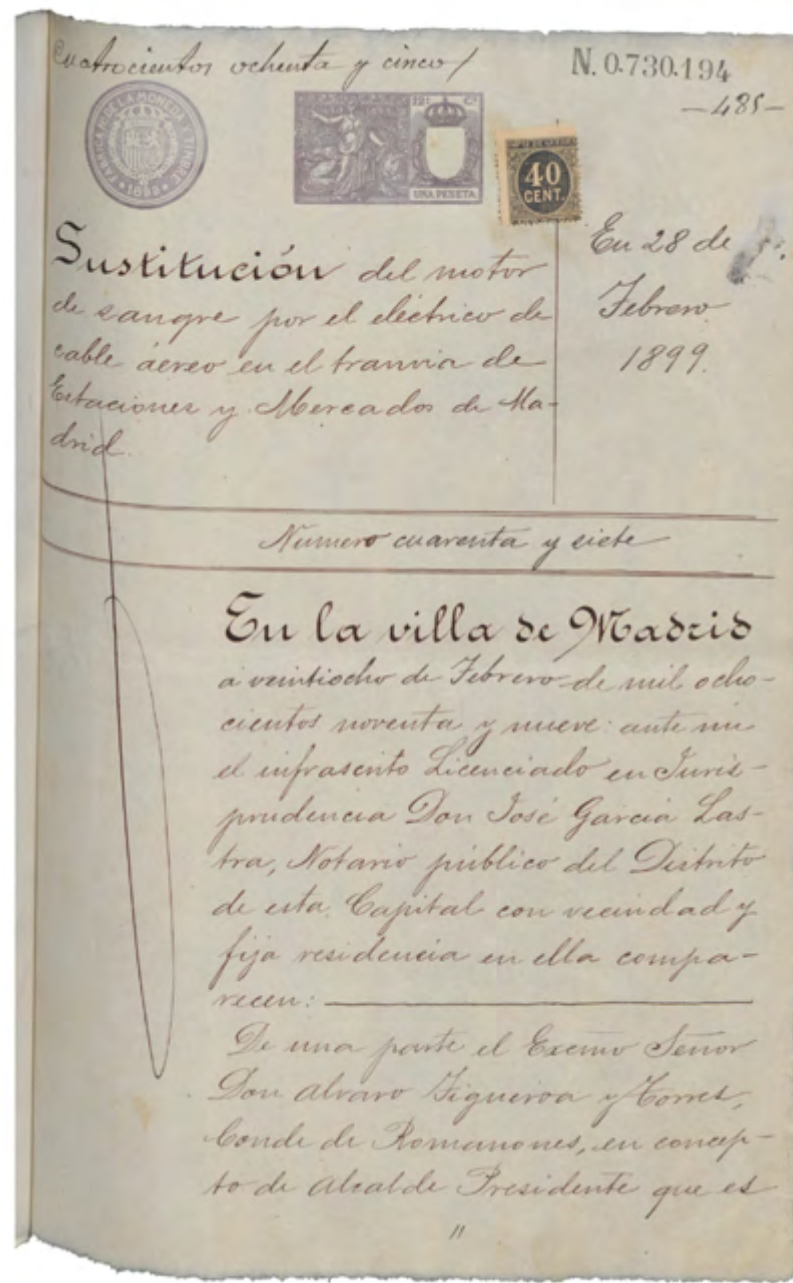 Cuatrocientos ochenta y cinco/
N. 0.730.194
-485-
FABRICA DE LA MONEDA Y TIMBRE
1899
12ª Cª
UNA PESETA
40
CENT.
Sustitución del motor
de sangre por el eléctrico de
cable aéreo en el tranvia de
Estaciones y Mercados de Ma-
drid.
En 28 de
Febrero
1899.
Numero cuarenta y siete
En la villa de Madrid
a veintiocho de Febrero de mil ocho-
cientos noventa y nueve: ante mi
el infrascrito Licenciado en Juris-
prudencia Don José Garcia Las-
tra, Notario público del Distrito
de esta Capital con vecindad y
fija residencia en ella compa-
recen:
De una parte el Excmo Señor
Don Alvaro Figueroa y Torres,
Conde de Romanones, en concep-
to de Alcalde Presidente que es
11